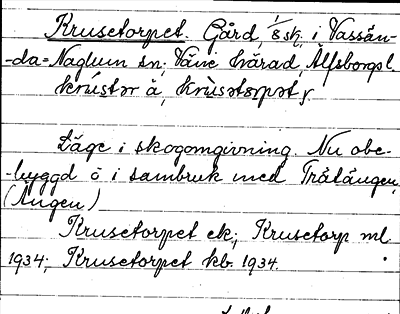 Krusetorpet. Gård, 1/8 sk. i Vassän-
-da=Naglum sn; Väne härad, Älfsborgs l.
Läge i skogomgivning. Nu obe-
-byggd o i sambruk med Trålången,
(Ången)
Krusetorpet ek; Krusetorp ml
1934; Krusetorpet kb 1934.